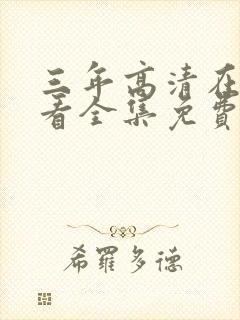 三年高清在
看全集免費
希羅多德